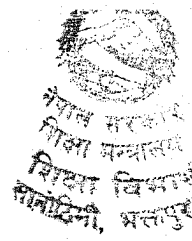 नेपाल सरकार
शिक्षा मन्त्रालय
शिक्षा विभाग
सानोठिमी, भक्तपुर